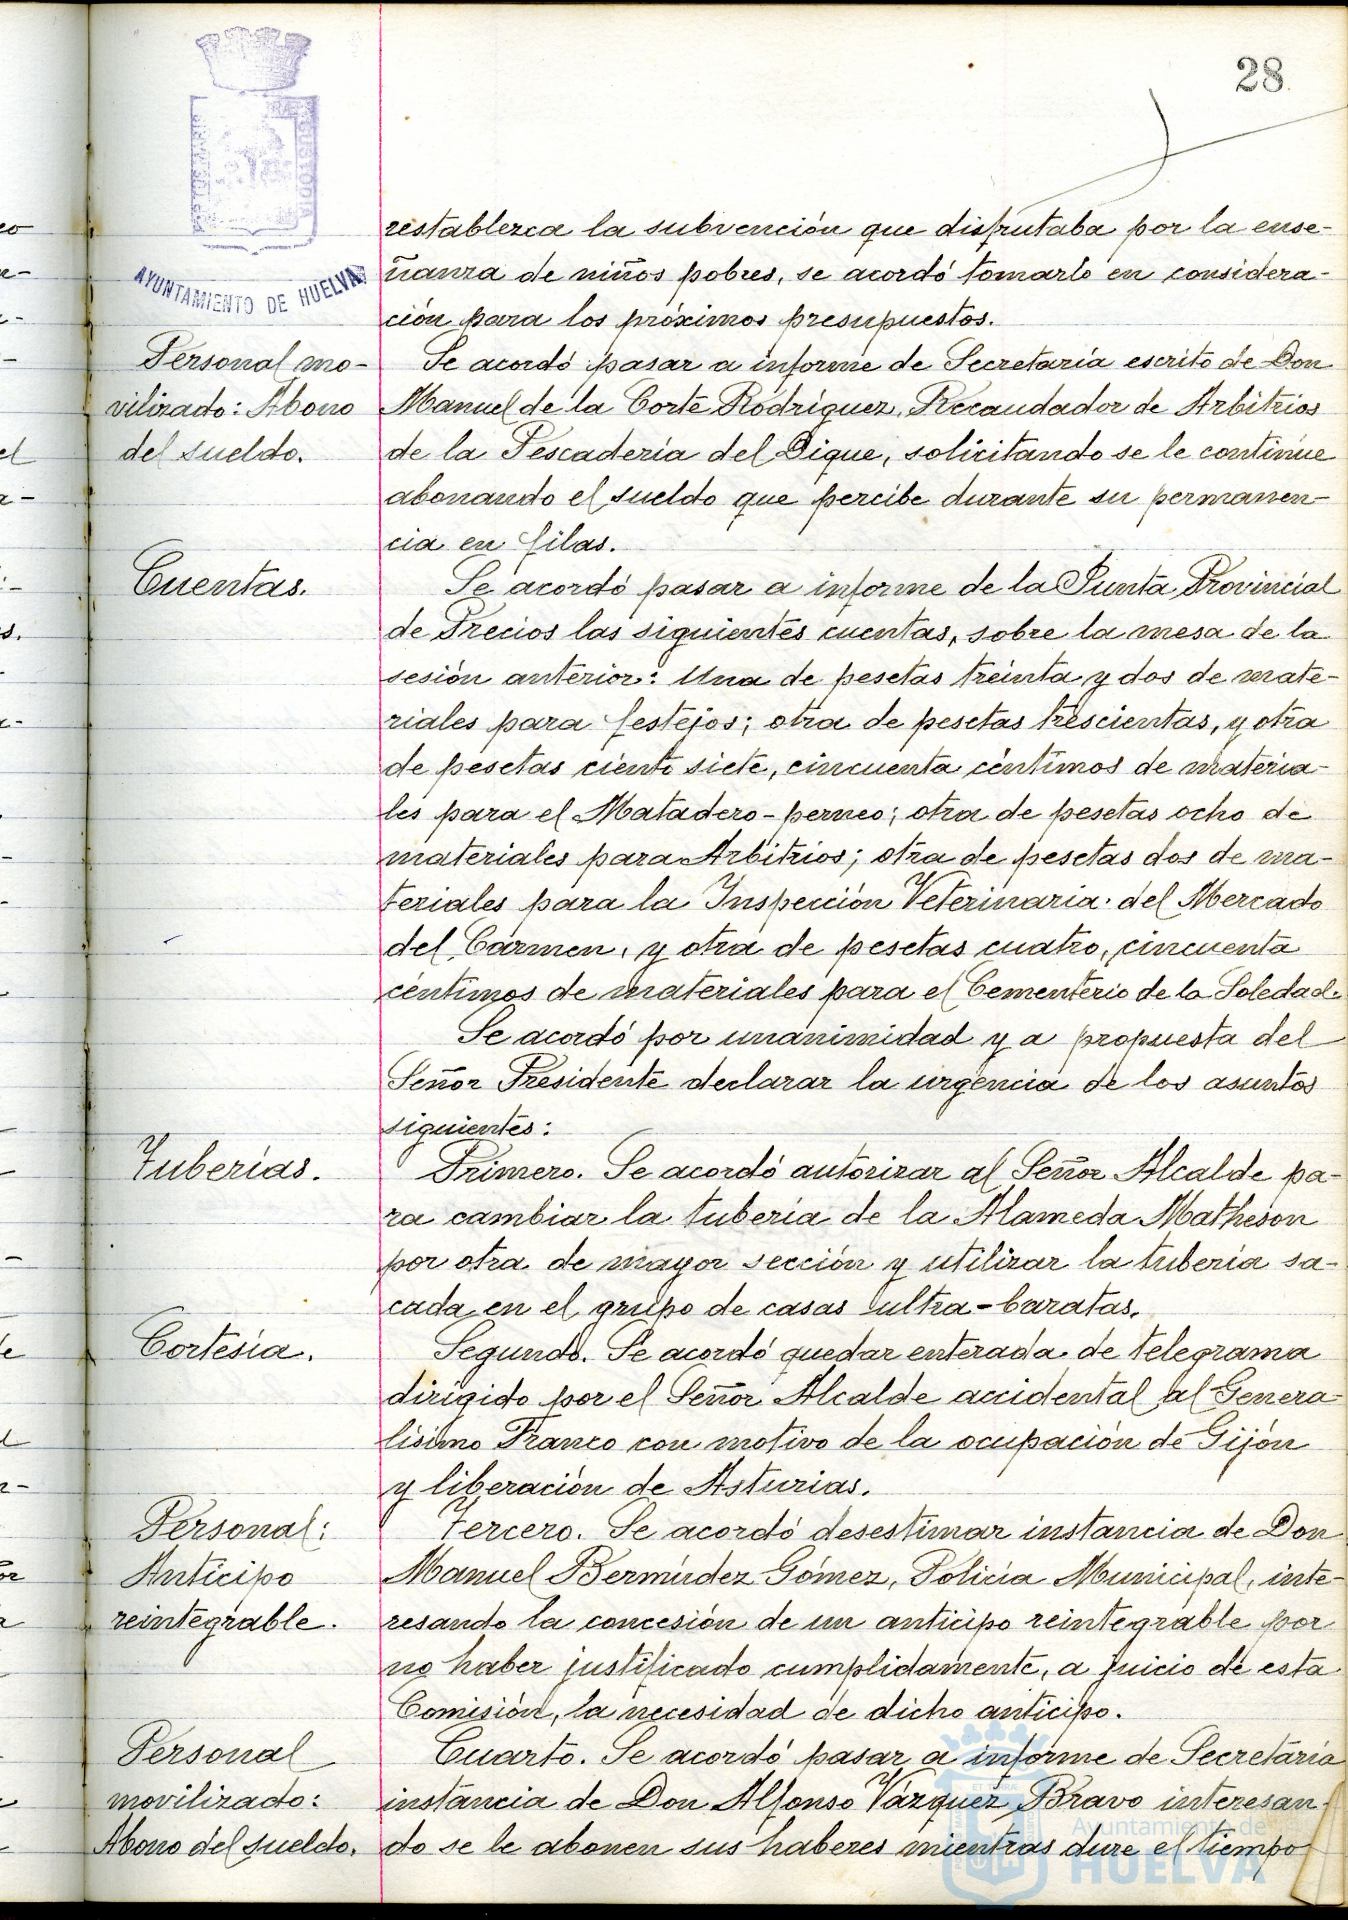 28
PORTUS MARIS ET TERRÆ CUSTODIA
AYUNTAMIENTO DE HUELVA
restablezca la subvención que disfrutaba por la ense-
ñanza de niños pobres, se acordó tomarlo en considera-
ción para los próximos presupuestos.
Personal mo-
vilizado: Abono
del sueldo.
Se acordó pasar a informe de Secretaría escrito de Don
Manuel de la Corte Rodríguez, Recaudador de Arbitrios
de la Pescadería del Dique, solicitando se le continúe
abonando el sueldo que percibe durante su permanen-
cia en filas.
Cuentas.
Se acordó pasar a informe de la Junta Provincial
de Precios las siguientes cuentas, sobre la mesa de la
sesión anterior: Una de pesetas treinta y dos de mate-
riales para festejos; otra de pesetas trescientas, y otra
de pesetas ciento siete, cincuenta céntimos de materia-
les para el Matadero-perneo; otra de pesetas ocho de
materiales para Arbitrios; otra de pesetas dos de ma-
teriales para la Inspección Veterinaria del Mercado
del Carmen, y otra de pesetas cuatro, cincuenta
céntimos de materiales para el Cementerio de la Soledad.
Se acordó por unanimidad y a propuesta del
Señor Presidente declarar la urgencia de los asuntos
siguientes:
Tuberías.
Primero. Se acordó autorizar al Señor Alcalde pa-
ra cambiar la tubería de la Alameda Matheson
por otra de mayor sección y utilizar la tubería sa-
cada en el grupo de casas ultra-baratas.
Cortesía.
Segundo. Se acordó quedar enterada de telegrama
dirigido por el Señor Alcalde accidental al Genera-
lísimo Franco con motivo de la ocupación de Gijón
y liberación de Asturias.
Personal:
Anticipo
reintegrable.
Tercero. Se acordó desestimar instancia de Don
Manuel Bermúdez Gómez, Policía Municipal, inte-
resando la concesión de un anticipo reintegrable por
no haber justificado cumplidamente, a juicio de esta
Comisión, la necesidad de dicho anticipo.
Personal
movilizado:
Abono del sueldo.
Cuarto. Se acordó pasar a informe de Secretaría
instancia de Don Alfonso Vázquez Bravo interesan-
do se le abonen sus haberes mientras dure el tiempo
Ayuntamiento de
HUELVA